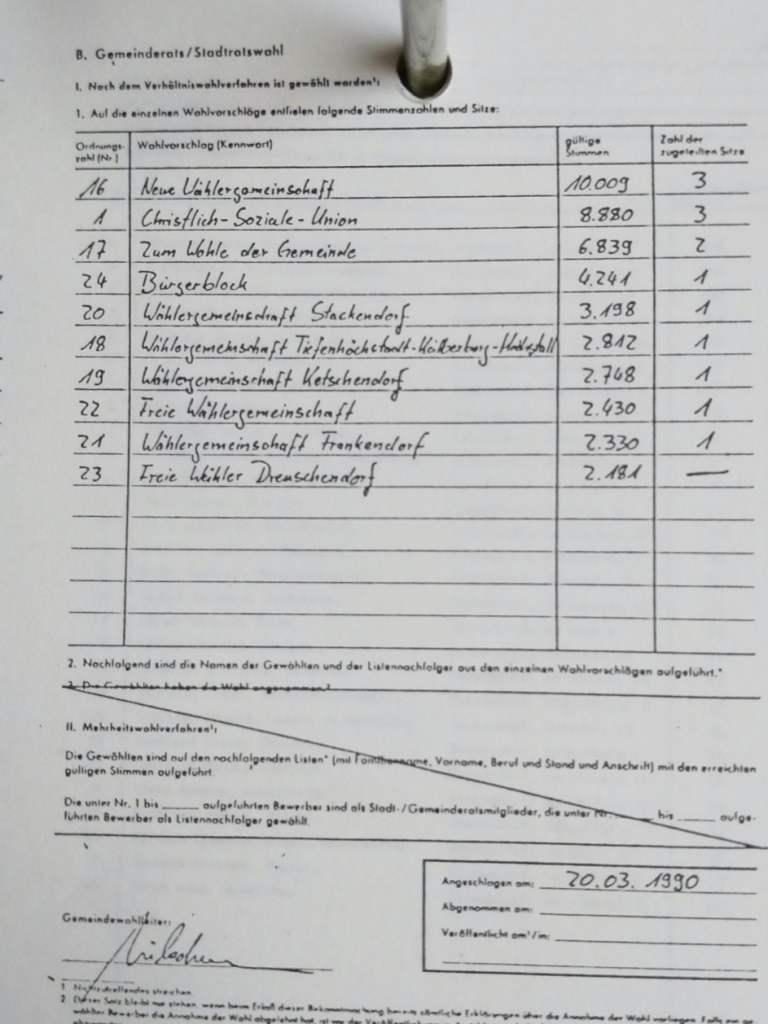 B. Gemeinderats/Stadtratswahl
I. Nach dem Verhältniswahlverfahren ist gewählt worden¹:
1. Auf die einzelnen Wahlvorschläge entfielen folgende Stimmenzahlen und Sitze:
Ordnungs- Wahlvorschlag (Kennwort) gültige Zahl der
zahl (Nr.) Stimmen zugeteilten Sitze
16 Neue Wählergemeinschaft 10.009 3
1 Christlich-Soziale-Union 8.880 3
17 Zum Wohle der Gemeinde 6.839 2
24 Bürgerblock 4.241 1
20 Wählergemeinschaft Stackendorf 3.198 1
18 Wählergemeinschaft Tiefenhöchstadt- 2.812 1
19 Wählergemeinschaft Ketschendorf 2.748 1
22 Freie Wählergemeinschaft 2.430 1
21 Wählergemeinschaft Frankendorf 2.330 1
23 Freie Wähler Dreuschendorf 2.181 —
2. Nachfolgend sind die Namen der Gewählten und der Listennachfolger aus den einzelnen Wahlvorschlägen aufgeführt.*
3. Die Gewählten haben die Wahl angenommen.²
II. Mehrheitswahlverfahren¹:
Die Gewählten sind auf den nachfolgenden Listen* (mit Familienname, Vorname, Beruf und Stand und Anschrift) mit den erreichten
gültigen Stimmen aufgeführt.
Die unter Nr. 1 bis ______ aufgeführten Bewerber sind als Stadt-/Gemeinderatsmitglieder, die unter Nr. ______ bis ______ aufge-
führten Bewerber als Listennachfolger gewählt.
Angeschlagen am: 20.03.1990
Abgenommen am:
Gemeindewahlleiter:
Veröffentlicht am¹/in:
1 Nichtzutreffendes streichen.
2. Dieser Satz bleibt nur stehen, wenn beim Erlaß dieser Bekanntmachung bereits sämtliche Erklärungen über die Annahme der Wahl vorliegen. Falls ein
wählter Bewerber die Annahme der Wahl abgelehnt hat, ist vor der